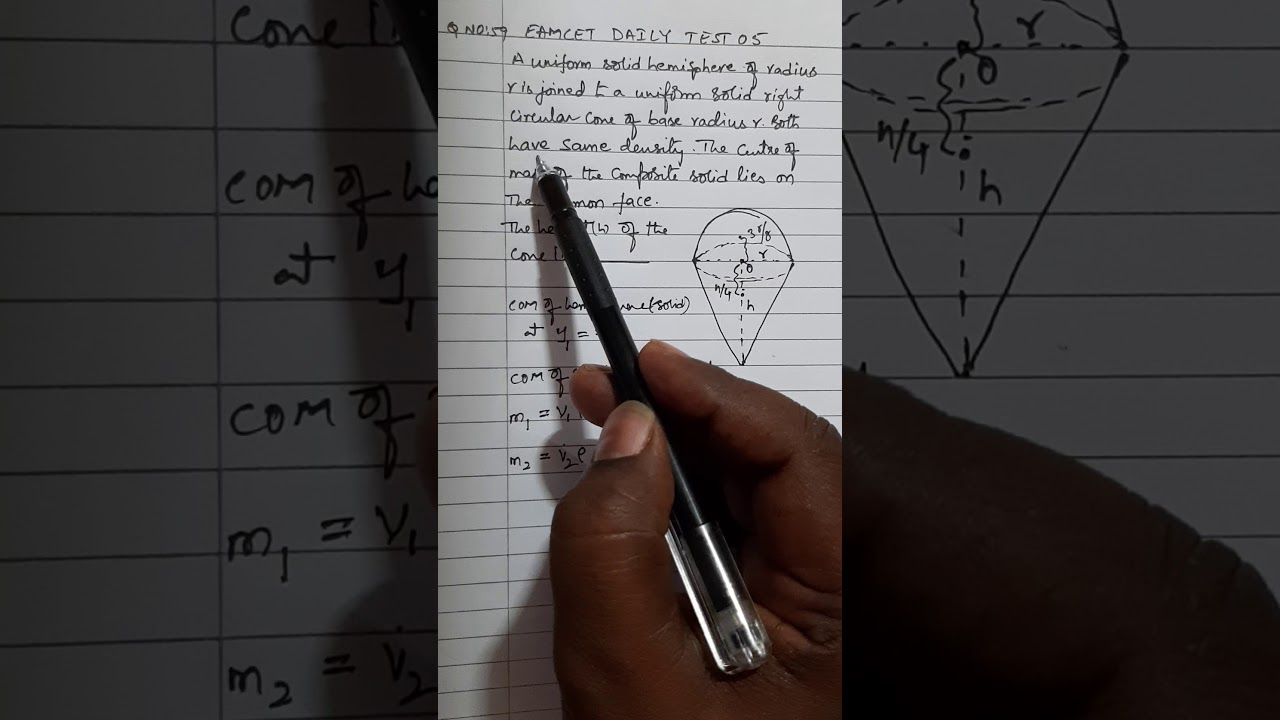 Q NO:59 EAMCET DAILY TEST 05
A uniform solid hemisphere of radius
r is joined to a uniform solid right
circular cone of base radius r. Both
have same density. The centre of
of the composite solid lies on
The face.
The of the
cone
3r/8
r
O
h/4
h
com of (solid)
at y₁ =
com of
m₁ = V₁
m₂ = V₂ρ